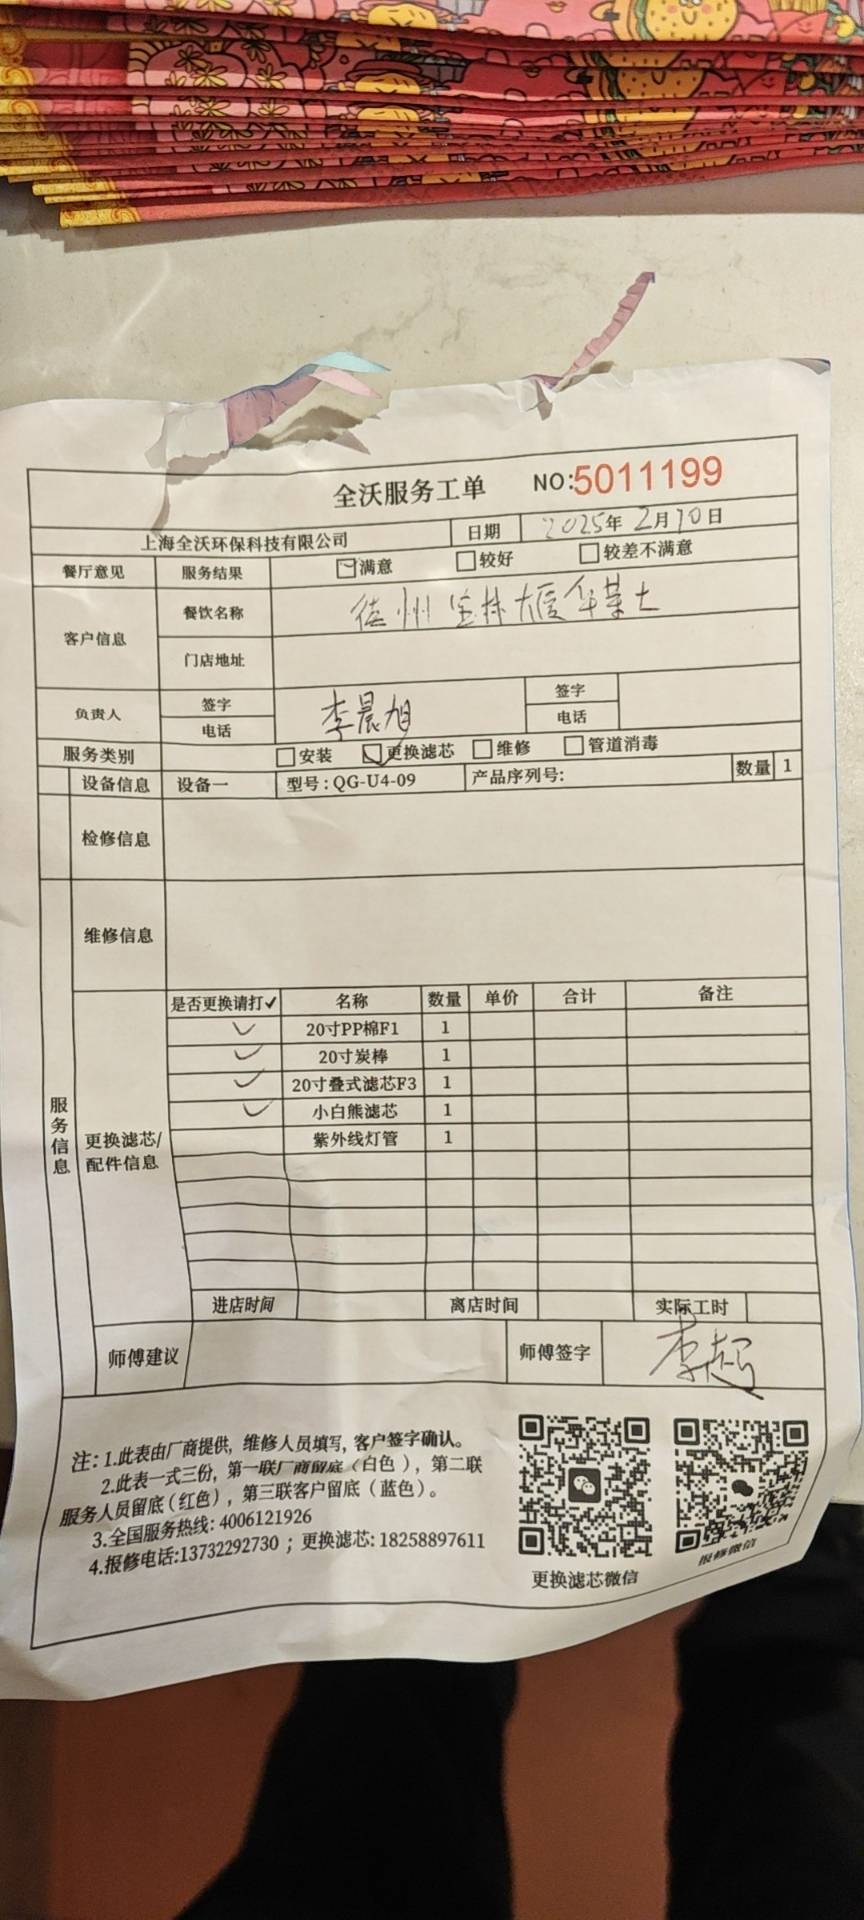 全沃服务工单 NO:5011199
上海全沃环保科技有限公司 日期 2025年2月10日
餐厅意见 服务结果 满意 较好 较差不满意
客户信息 餐饮名称 德州 大厦华莱士
门店地址
负责人 签字 李晨旭 签字
电话 电话
服务类别 安装 更换滤芯 维修 管道消毒
设备信息 设备一 型号:QG-U4-09 产品序列号: 数量 1
检修信息
维修信息
服务信息
更换滤芯/配件信息
是否更换请打✓ 名称 数量 单价 合计 备注
✓ 20寸PP棉F1 1
✓ 20寸炭棒 1
✓ 20寸叠式滤芯F3 1
✓ 小白熊滤芯 1
紫外线灯管 1
进店时间 离店时间 实际工时
师傅建议 师傅签字 李超
注: 1.此表由厂商提供, 维修人员填写, 客户签字确认。
2.此表一式三份, 第一联厂商留底 (白色), 第二联
服务人员留底 (红色), 第三联客户留底 (蓝色)。
3.全国服务热线: 4006121926
4.报修电话:13732292730 ; 更换滤芯: 18258897611
更换滤芯微信
报修微信